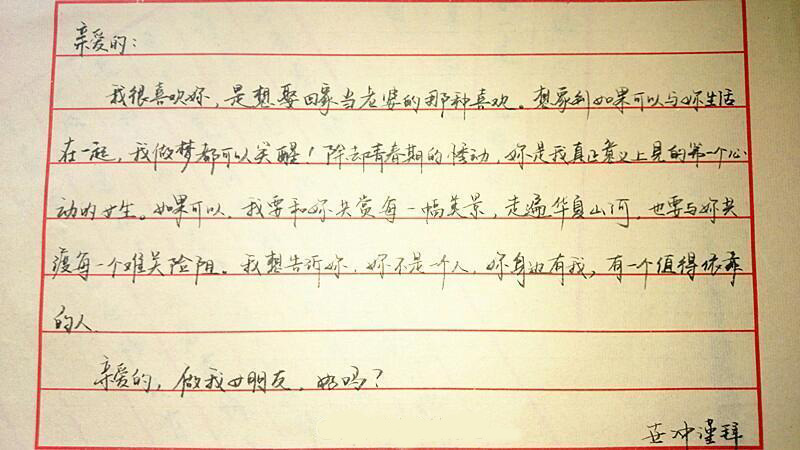 亲爱的：
我很喜欢妳，是想娶回家当老婆的那种喜欢。想象到如果可以与妳生活
在一起，我做梦都可以笑醒！除却青春期的悸动，妳是我真正意义上见的第一个心
动的女生。如果可以，我要和妳共赏每一幅美景，走遍华夏山河，也要与妳共
渡每一个难关险阻。我想告诉妳，妳不是一个人，妳身边有我，有一个值得依靠
的人.
亲爱的，做我女朋友，好吗？
冲谨拜